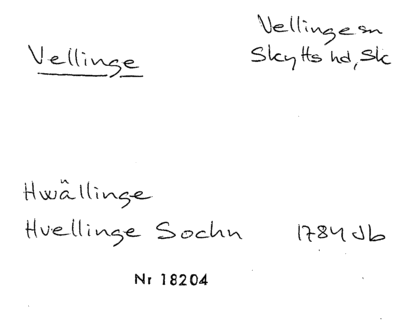 Vellinge
Vellinge sn
Skytts hd, Sk
Hwällinge
Hvellinge Sochn 1784 Jb
Nr 18204